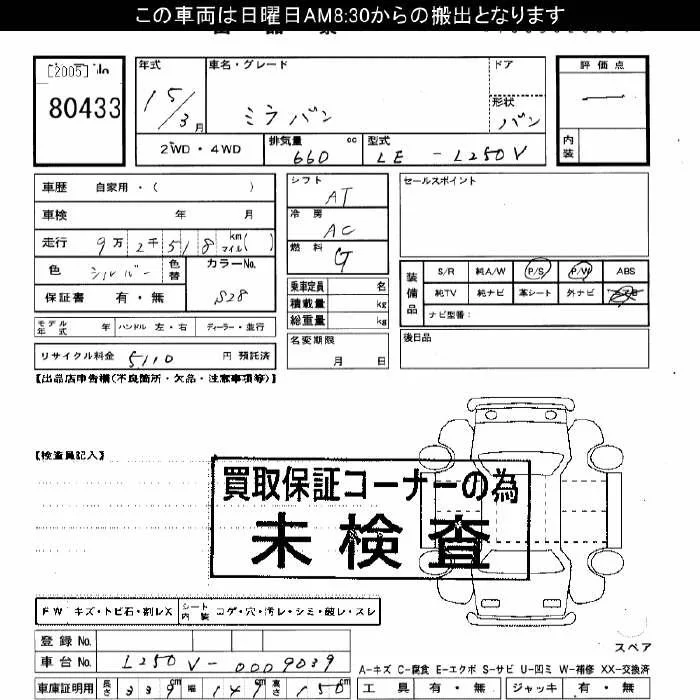 この車両は日曜日AM8:30からの搬出となります
[2005] No
80433
年式 車名・グレード ドア 評価点
15/3月 ミラバン 形状 バン —
2WD・4WD 排気量 660 cc 型式 LE - L250V 内装
車歴 自家用・( ) シフト AT セールスポイント
車検 年 月 冷房 AC
走行 9万2千518 km マイル( ) 燃料 G
色 シルバー 色替 カラーNo. S28
保証書 有・無
乗車定員 名
積載量 kg
総重量 kg
装備品 S/R 純A/W P/S P/W ABS
純TV 純ナビ 革シート 外ナビ
ナビ型番:
モデル年式 年 ハンドル 左・右 ディーラー・並行
名変期限 月 日
後日品
リサイクル料金 5110 円 預託済
【出品店申告欄(不良箇所・欠品・注意事項等)】
【検査員記入】
買取保証コーナーの為
未検査
FW キズ・トビ石・割レX シート内装 コゲ・穴・汚レ・シミ・破レ・スレ
登録No. スペア
車台No. L250V-0009039
A-キズ C-腐食 E-エクボ S-サビ U-凹ミ W-補修 XX-交換済
車庫証明用 長さ 339cm 幅 147cm 高さ 150cm 工具 有・無 ジャッキ 有・無